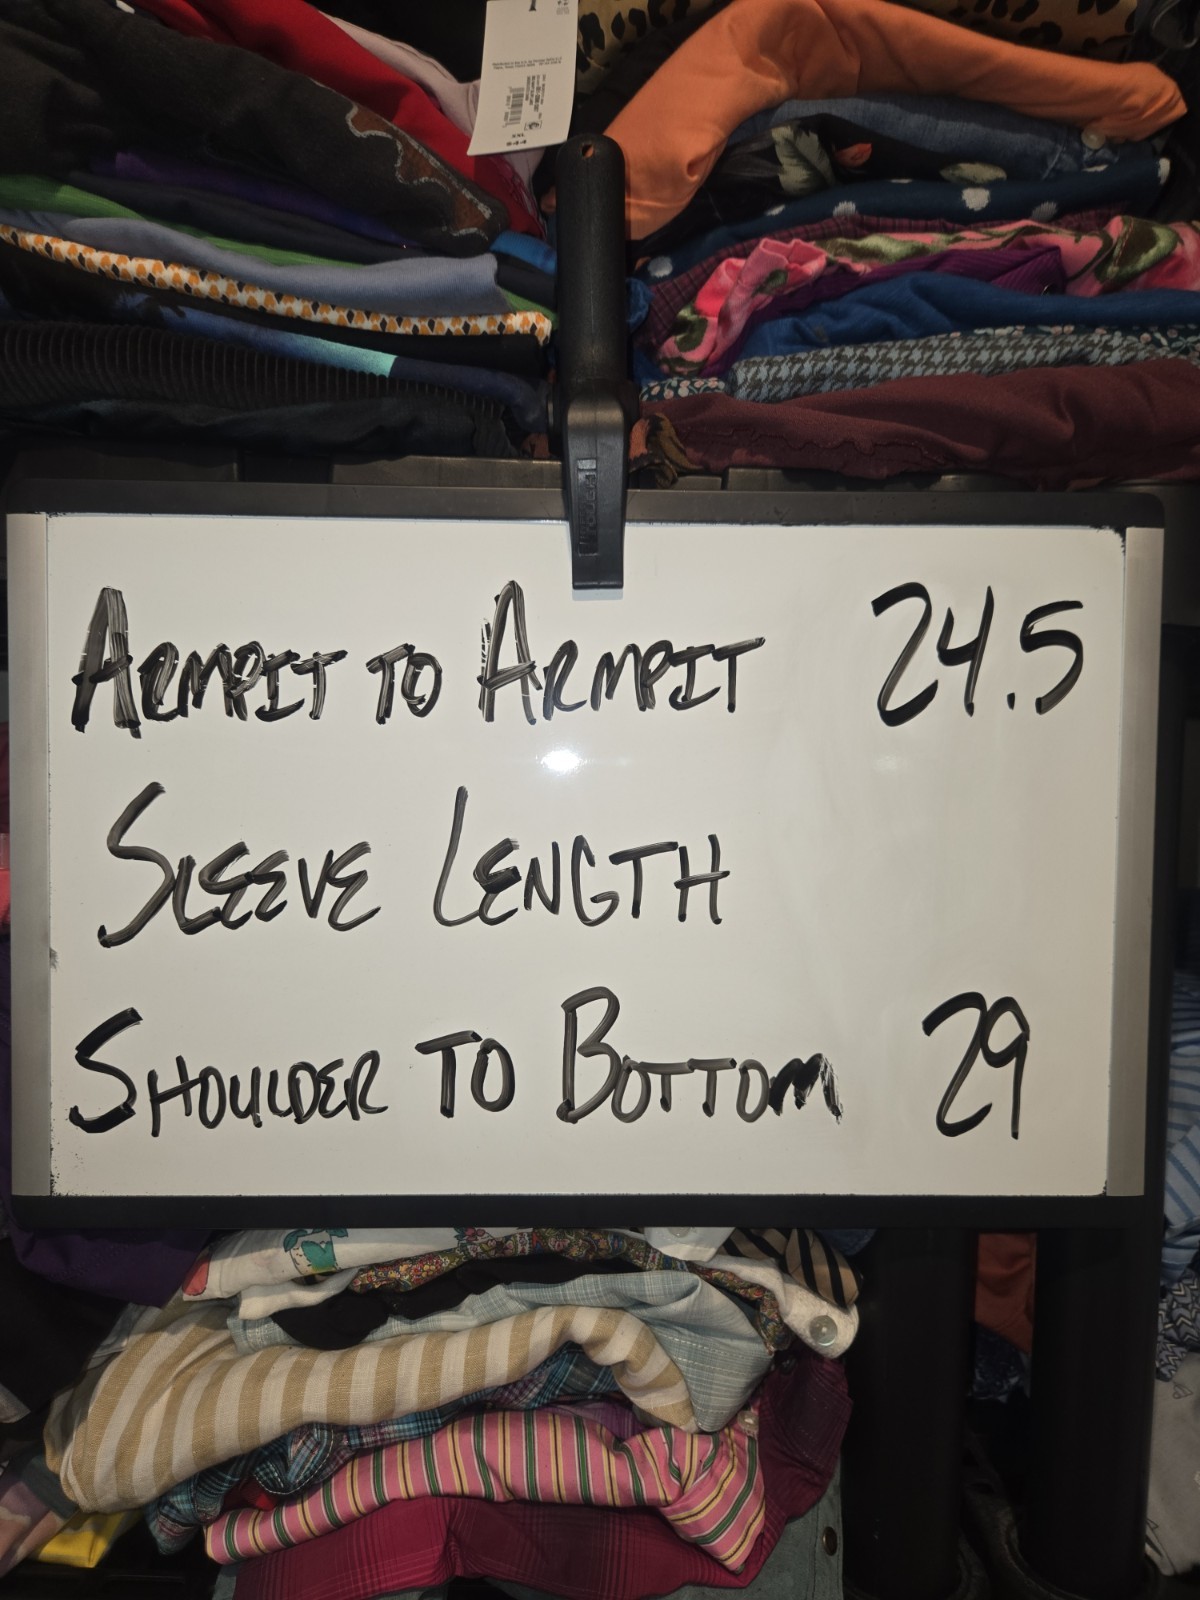 Armpit to Armpit 24.5
Sleeve Length
Shoulder to Bottom 29